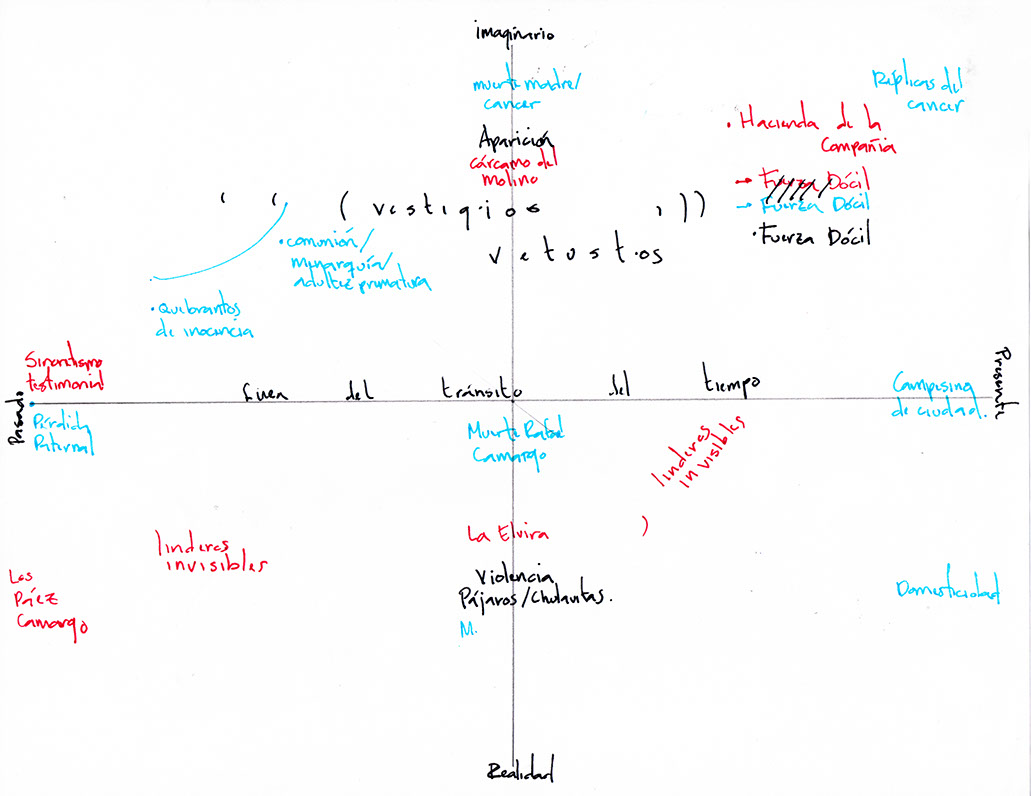 imaginario
muerte madre/
cancer
Réplicas del
cancer
Aparición
cárcamo del
molino
• Hacienda de la
Compañia
→ Fuerza Dócil
→ Fuerza Dócil
• Fuerza Dócil
( ( ( vestigios , ) )
vetustos
• comunión/
menarquía/
adultez prematura
• Quebrantos
de inocencia
Sincretismo
testimonial
Línea del tránsito del tiempo
Pasado
Presente
Pérdida
Paternal
Campesina
de ciudad.
Muerte Rafael
Camargo
linderos
invisibles
linderos
invisibles
La Elvira
)
Los
Páez
Camargo
Violencia
Pájaros/Chulavitas.
M.
Domesticidad
Realidad